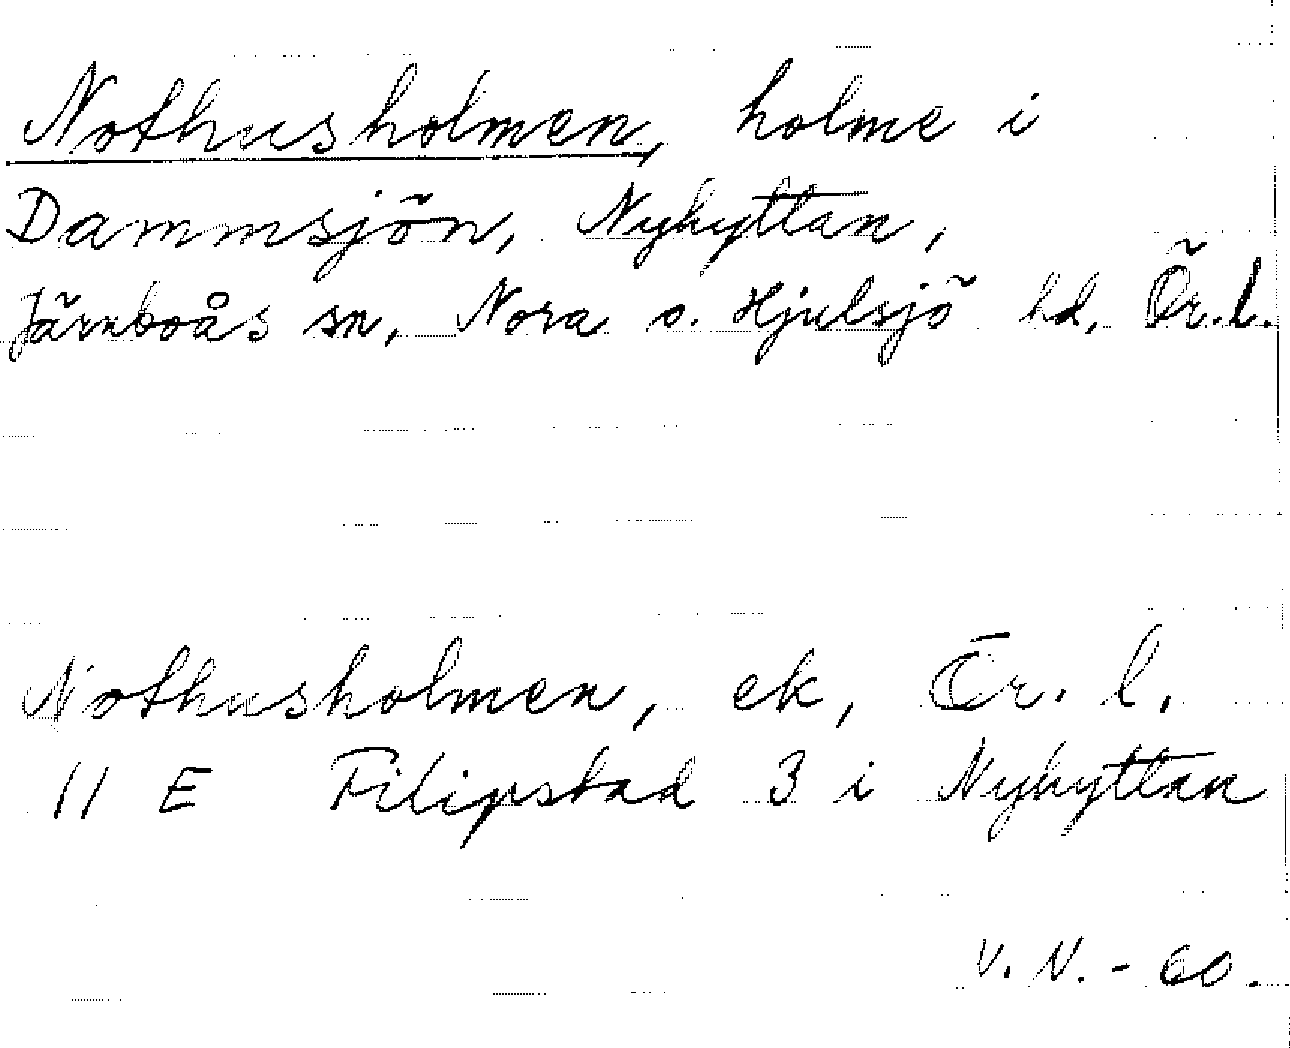 Nothusholmen, holme i
Dammsjön, Nyhyttan,
Järnboås sn, Nora o. Hjulsjö hd, Ör.l.
Nothusholmen, ek, Ör. l.
11 E Filipstad 3 i Nyhyttan
V. N. - 60.